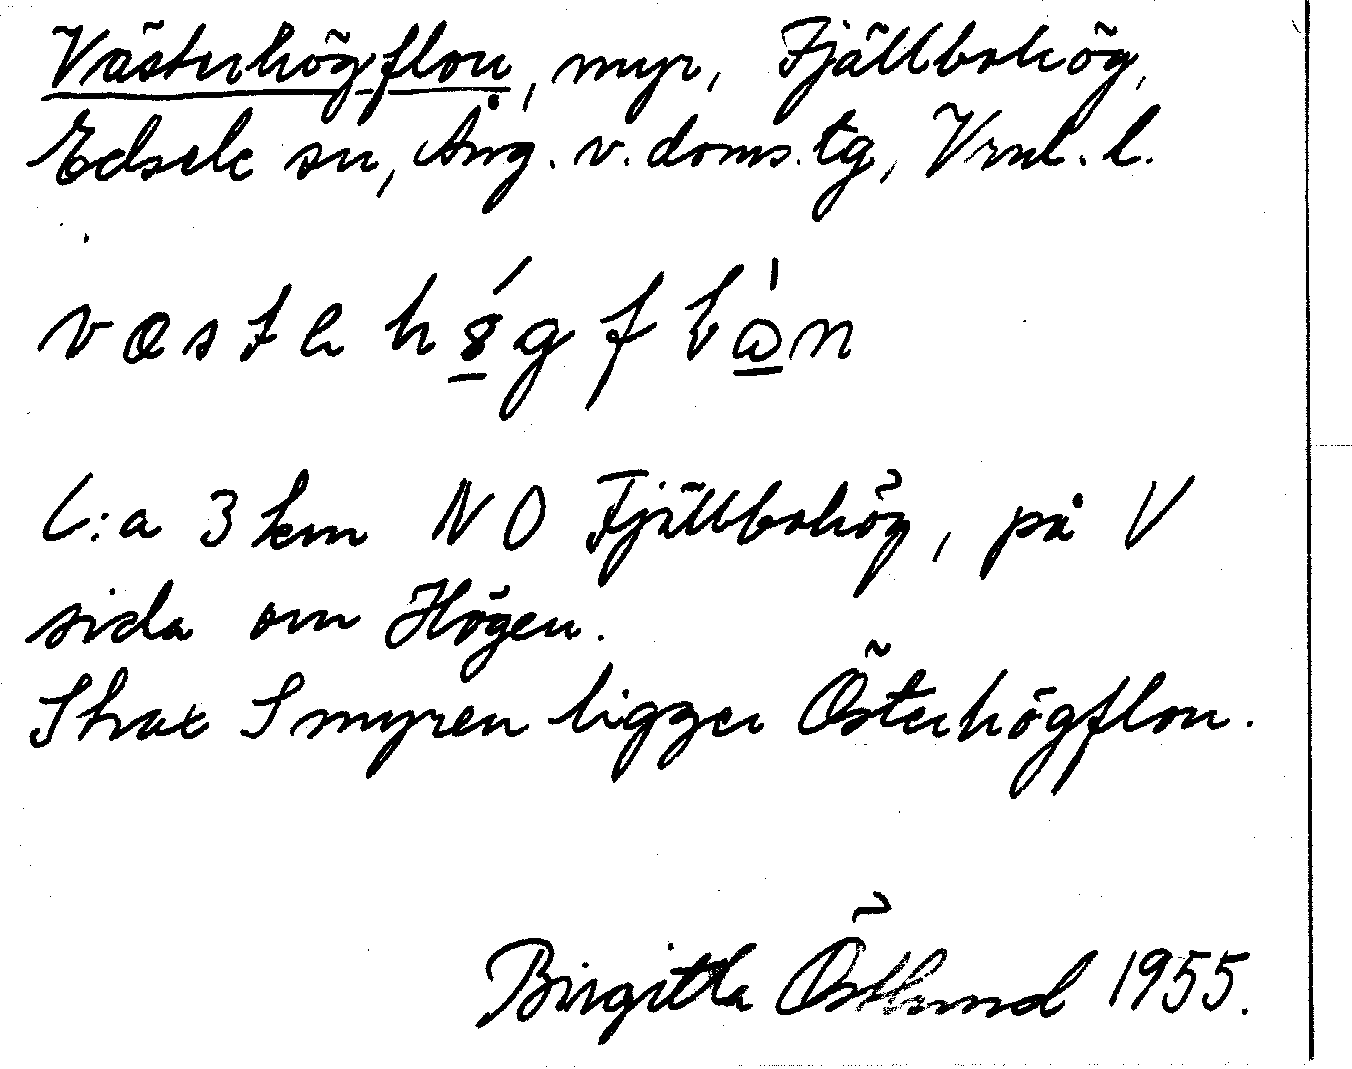 Västerhögflon, myr, Fjällbohög,
Edsele sn, Ång. v. doms. tg, Vrnl. l.
C:a 3 km NO Fjällbohög, på V
sida om Högen.
Strax S myren ligger Österhögflon.
Birgitta Östlund 1955.